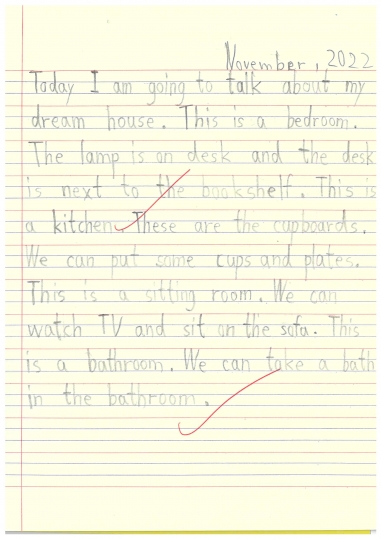 November, 2022
Today I am going to talk about my
dream house. This is a bedroom.
The lamp is on desk and the desk
is next to the bookshelf. This is
a kitchen. These are the cupboards.
We can put some cups and plates.
This is a sitting room. We can
watch TV and sit on the sofa. This
is a bathroom. We can take a bath
in the bathroom.